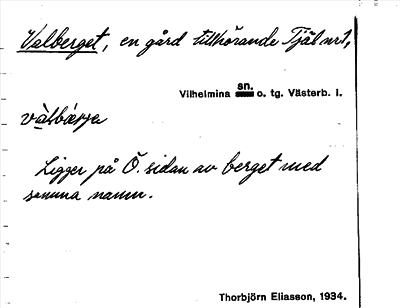 Valberget, en gård tillhörande Tjäl nr 1,
Vilhelmina sn. o. tg. Västerb. l.
vàlbærje
Ligger på Ö. sidan av berget med
samma namn.
Thorbjörn Eliasson, 1934.